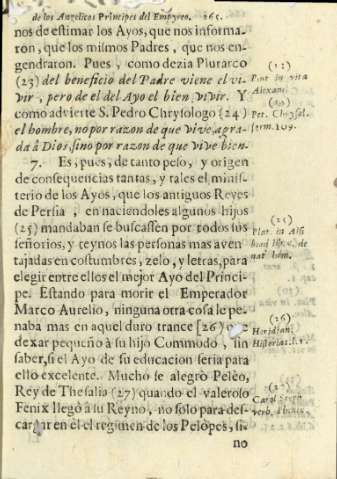 de los Angelicos Principes del Empyreo. 265.
nos de estimar los Ayos, que nos informa-
ron, que los mismos Padres, que nos en-
gendraron. Pues, como dezia Plutarco
(23) del beneficio del Padre viene el vi-
vir, pero de el del Ayo el bien vivir. Y
como advierte S. Pedro Chrysologo (24)
el hombre, no por razon de que vive, agra-
da á Dios, sino por razon de que vive bien.
7. Es, pues, de tanto peso, y origen
de consequencias tantas, y tales el minis-
terio de los Ayos, que los antiguos Reyes
de Persia, en naciendoles algunos hijos
(25) mandaban se buscassen por todos sus
señorios, y reynos las personas mas aven
tajadas en costumbres, zelo, y letras, para
elegir entre ellos el mejor Ayo del Princi-
pe. Estando para morir el Emperador
Marco Aurelio, ninguna otra cosa le pe-
naba mas en aquel duro trance [26] que
dexar pequeño à su hijo Commodo, sin
saber, si el Ayo de su educacion seria para
ello excelente. Mucho se alegrò Peleo,
Rey de Thesalia (27) quando el valeroso
Fenix llegò à su Reyno, no solo para des-
cargar en èl el regimen de los Pelopes, si-
no
Plut. in vita
Alexan.
Pet. Chrysol.
serm. 109.
(25)
Plat. in Alsi
(26)
Herodiani
Histor.